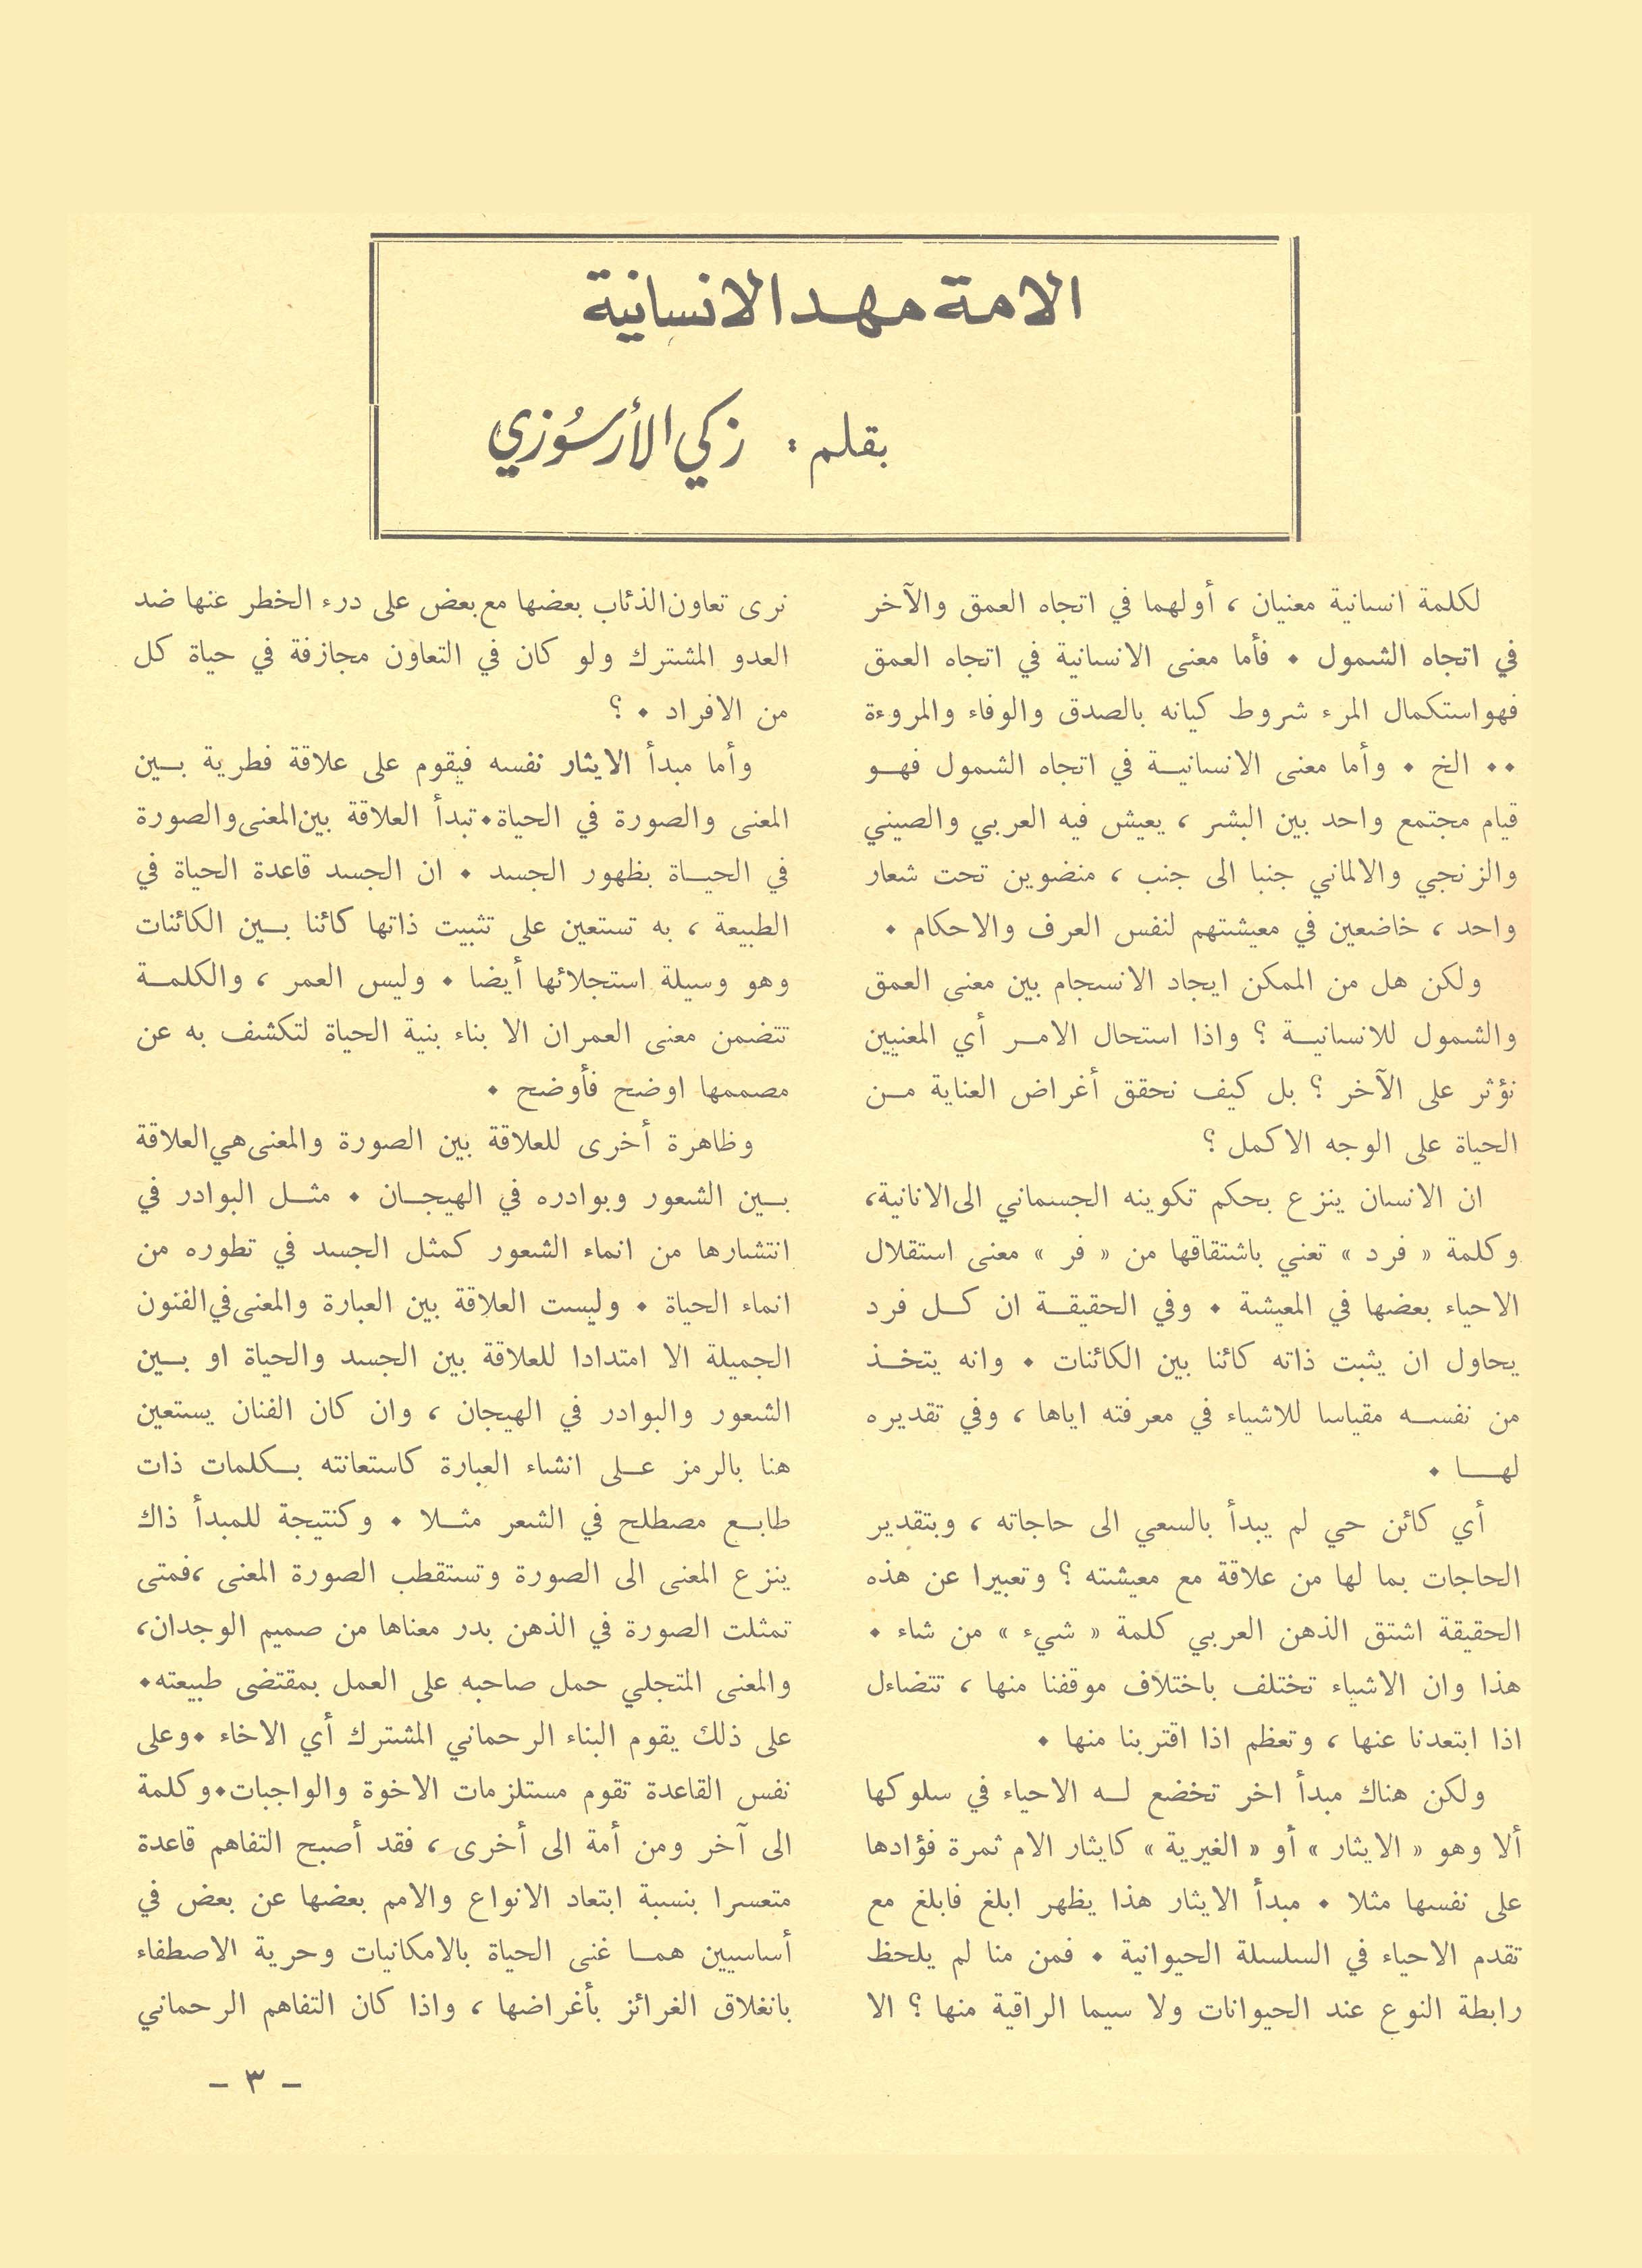 الامة مهد الانسانية
بقلم : زكي الأرسُوزي
لكلمة انسانية معنيان ، أولهما في اتجاه العمق والآخر
في اتجاه الشمول . فأما معنى الانسانية في اتجاه العمق
فهو استكمال المرء شروط كيانه بالصدق والوفاء والمروءة
.. الخ . وأما معنى الانسانية في اتجاه الشمول فهو
قيام مجتمع واحد بين البشر ، يعيش فيه العربي والصيني
والزنجي والالماني جنبا الى جنب ، منضوين تحت شعار
واحد ، خاضعين في معيشتهم لنفس العرف والاحكام .
ولكن هل من الممكن ايجاد الانسجام بين معنى العمق
والشمول للانسانية ؟ واذا استحال الامر أي المعنيين
نؤثر على الآخر ؟ بل كيف نحقق أغراض العناية من
الحياة على الوجه الاكمل ؟
ان الانسان ينزع بحكم تكوينه الجسماني الى الانانية،
وكلمة « فرد » تعني باشتقاقها من « فر » معنى استقلال
الاحياء بعضها في المعيشة . وفي الحقيقة ان كل فرد
يحاول ان يثبت ذاته كائنا بين الكائنات . وانه يتخذ
من نفسه مقياسا للاشياء في معرفته اياها ، وفي تقديره
لها .
أي كائن حي لم يبدأ بالسعي الى حاجاته ، وبتقدير
الحاجات بما لها من علاقة مع معيشته ؟ وتعبيرا عن هذه
الحقيقة اشتق الذهن العربي كلمة « شيء » من شاء .
هذا وان الاشياء تختلف باختلاف موقفنا منها ، تتضاءل
اذا ابتعدنا عنها ، وتعظم اذا اقتربنا منها .
ولكن هناك مبدأ اخر تخضع له الاحياء في سلوكها
ألا وهو « الايثار » أو « الغيرية » كايثار الام ثمرة فؤادها
على نفسها مثلا . مبدأ الايثار هذا يظهر ابلغ فابلغ مع
تقدم الاحياء في السلسلة الحيوانية . فمن منا لم يلحظ
رابطة النوع عند الحيوانات ولا سيما الراقية منها ؟ الا
نرى تعاون الذئاب بعضها مع بعض على درء الخطر عنها ضد
العدو المشترك ولو كان في التعاون مجازفة في حياة كل
من الافراد . ؟
وأما مبدأ الايثار نفسه فيقوم على علاقة فطرية بين
المعنى والصورة في الحياة. تبدأ العلاقة بين المعنى والصورة
في الحياة بظهور الجسد . ان الجسد قاعدة الحياة في
الطبيعة ، به تستعين على تثبيت ذاتها كائنا بين الكائنات
وهو وسيلة استجلائها أيضا . وليس العمر ، والكلمة
تتضمن معنى العمران الا بناء بنية الحياة لتكشف به عن
مصممها اوضح فأوضح .
وظاهرة أخرى للعلاقة بين الصورة والمعنى هي العلاقة
بين الشعور وبوادره في الهيجان . مثل البوادر في
انتشارها من انماء الشعور كمثل الجسد في تطوره من
انماء الحياة . وليست العلاقة بين العبارة والمعنى في الفنون
الجميلة الا امتدادا للعلاقة بين الجسد والحياة او بين
الشعور والبوادر في الهيجان ، وان كان الفنان يستعين
هنا بالرمز على انشاء العبارة كاستعانته بكلمات ذات
طابع مصطلح في الشعر مثلا . وكنتيجة للمبدأ ذاك
ينزع المعنى الى الصورة وتستقطب الصورة المعنى ،فمتى
تمثلت الصورة في الذهن بدر معناها من صميم الوجدان،
والمعنى المتجلي حمل صاحبه على العمل بمقتضى طبيعته.
على ذلك يقوم البناء الرحماني المشترك أي الاخاء .وعلى
نفس القاعدة تقوم مستلزمات الاخوة والواجبات.وكلمة
الى آخر ومن أمة الى أخرى ، فقد أصبح التفاهم قاعدة
متعسرا بنسبة ابتعاد الانواع والامم بعضها عن بعض في
أساسيين هما غنى الحياة بالامكانيات وحرية الاصطفاء
بانغلاق الغرائز بأغراضها ، واذا كان التفاهم الرحماني
- ٣ -